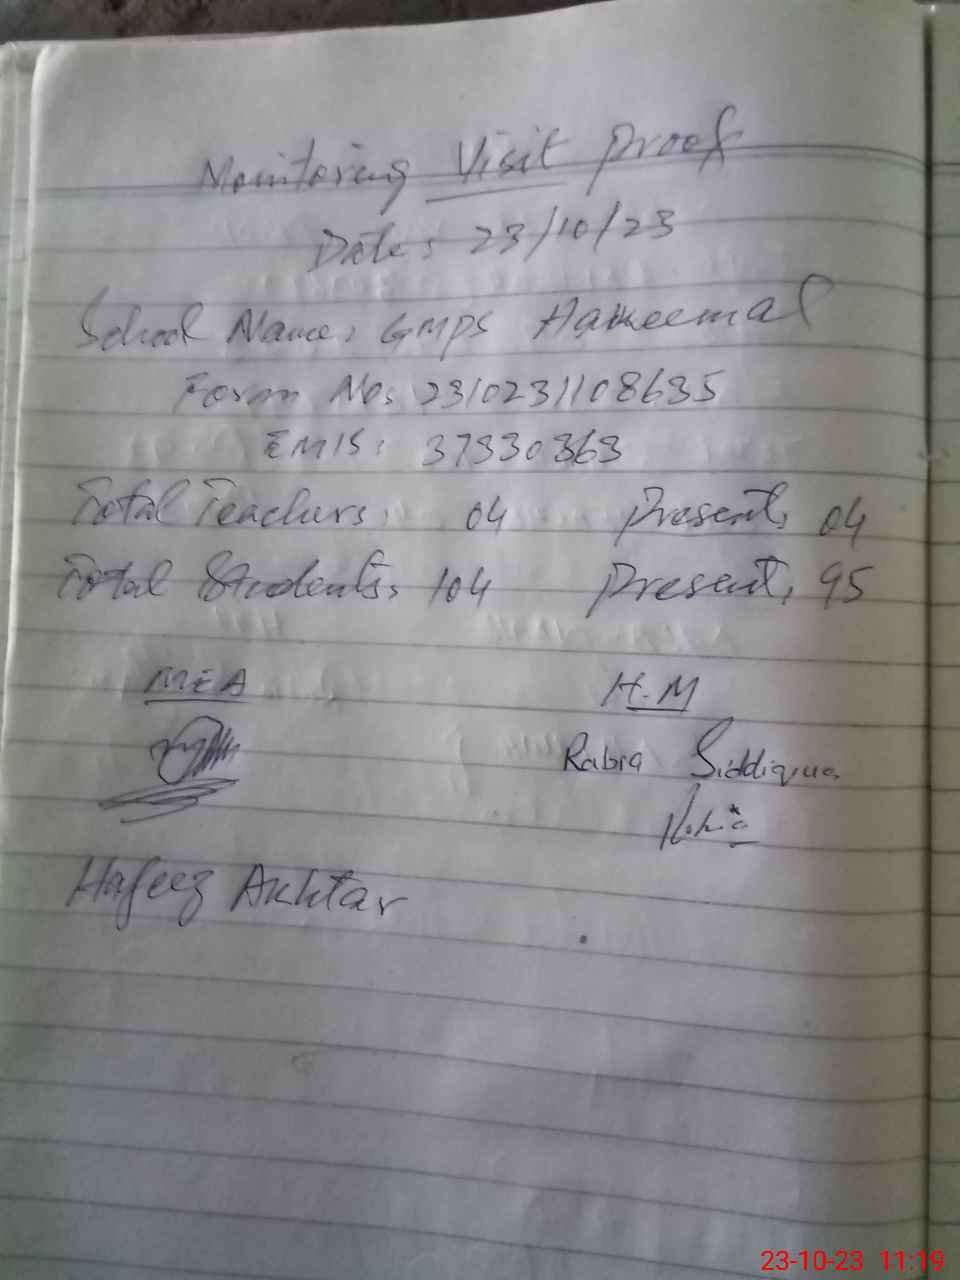 Monitoring Visit Proof
Date: 23/10/23
School Name: GMPS Hakeemal
Form No: 2310231108635
EMIS: 37330363
Total Teachers: 04 Present: 04
Total Students: 104 Present: 95
MEA H.M
Rabia Siddiqua
Rabia
Hafeez Akhtar
23-10-23 11:19